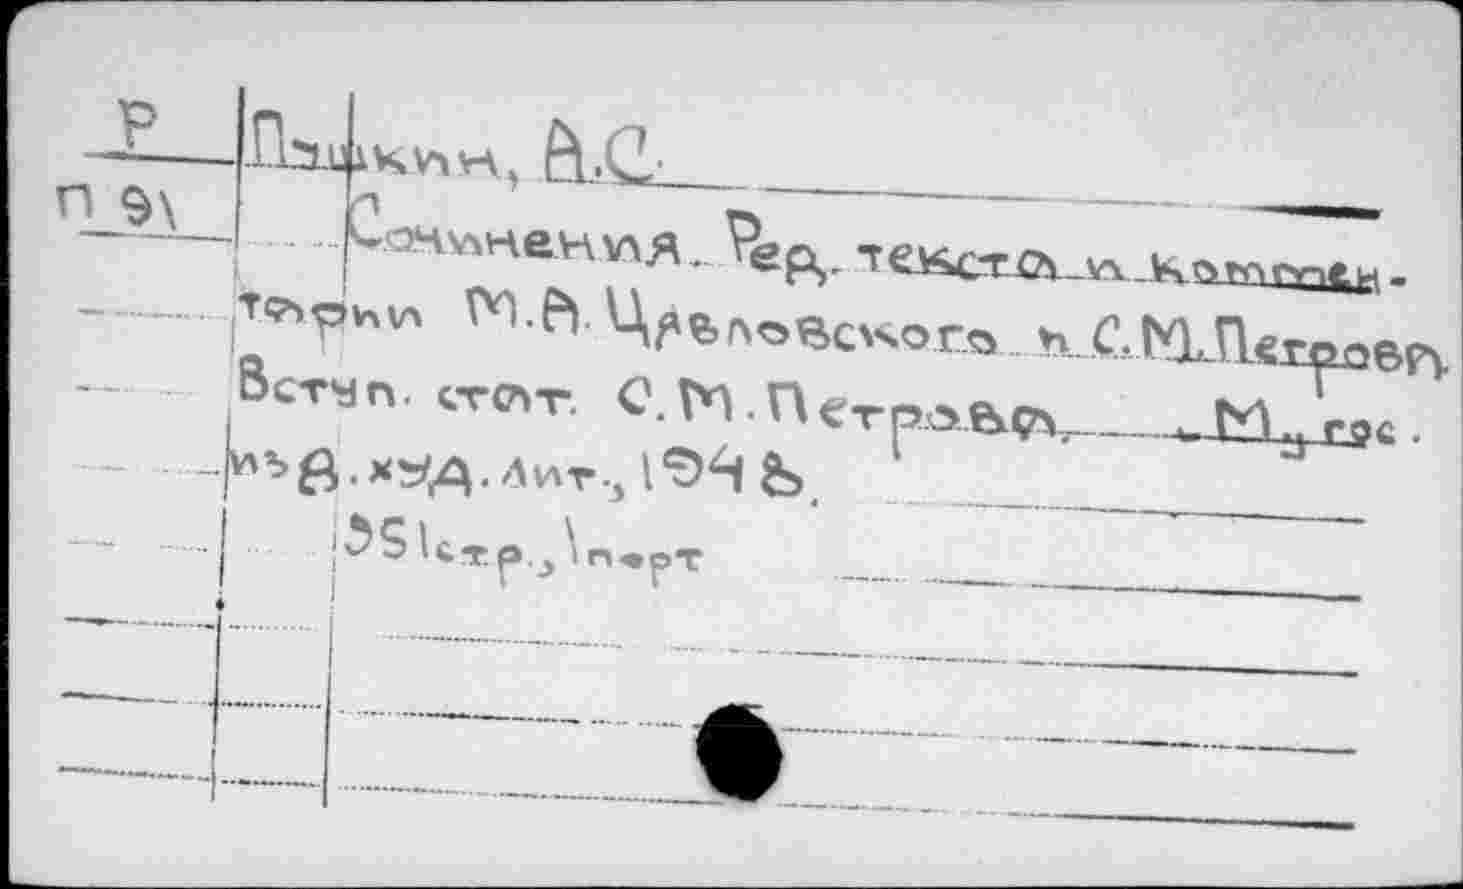 Р
Пушкин, А.С.
П 91
Сочинения. Ред. текста и коммен-
тарии М.А. Цявловского и С.М.Петрова.
Вступ. стат. С.М.Петрова, М., гос.
изд. худ. лит., 1949 в.
951стр., 1порт